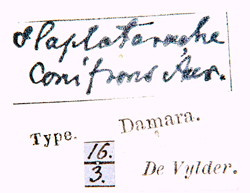 Haplatarache
Conifrons Aur.
Type. Damara.
16.
3. De Vylder.